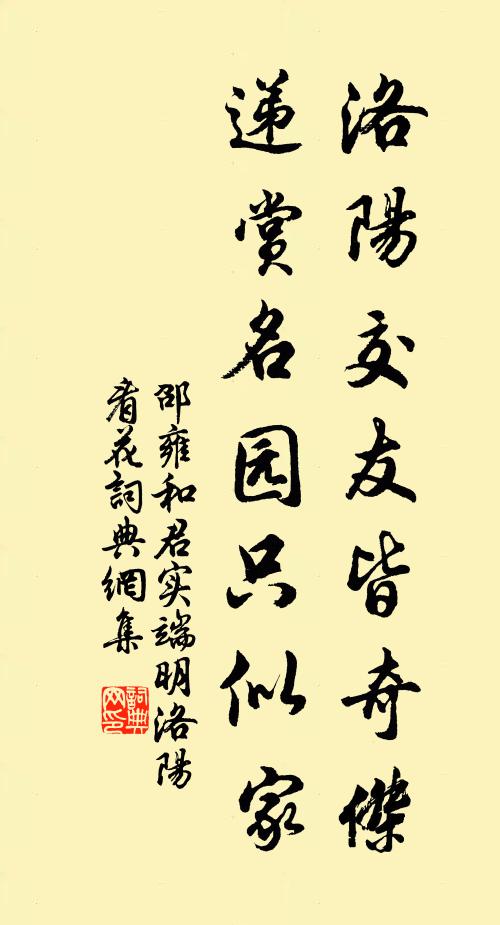 洛陽交友皆奇傑
递赏名园只似家
邵雍和君实端明洛陽
看花詞典網集
詞典网印